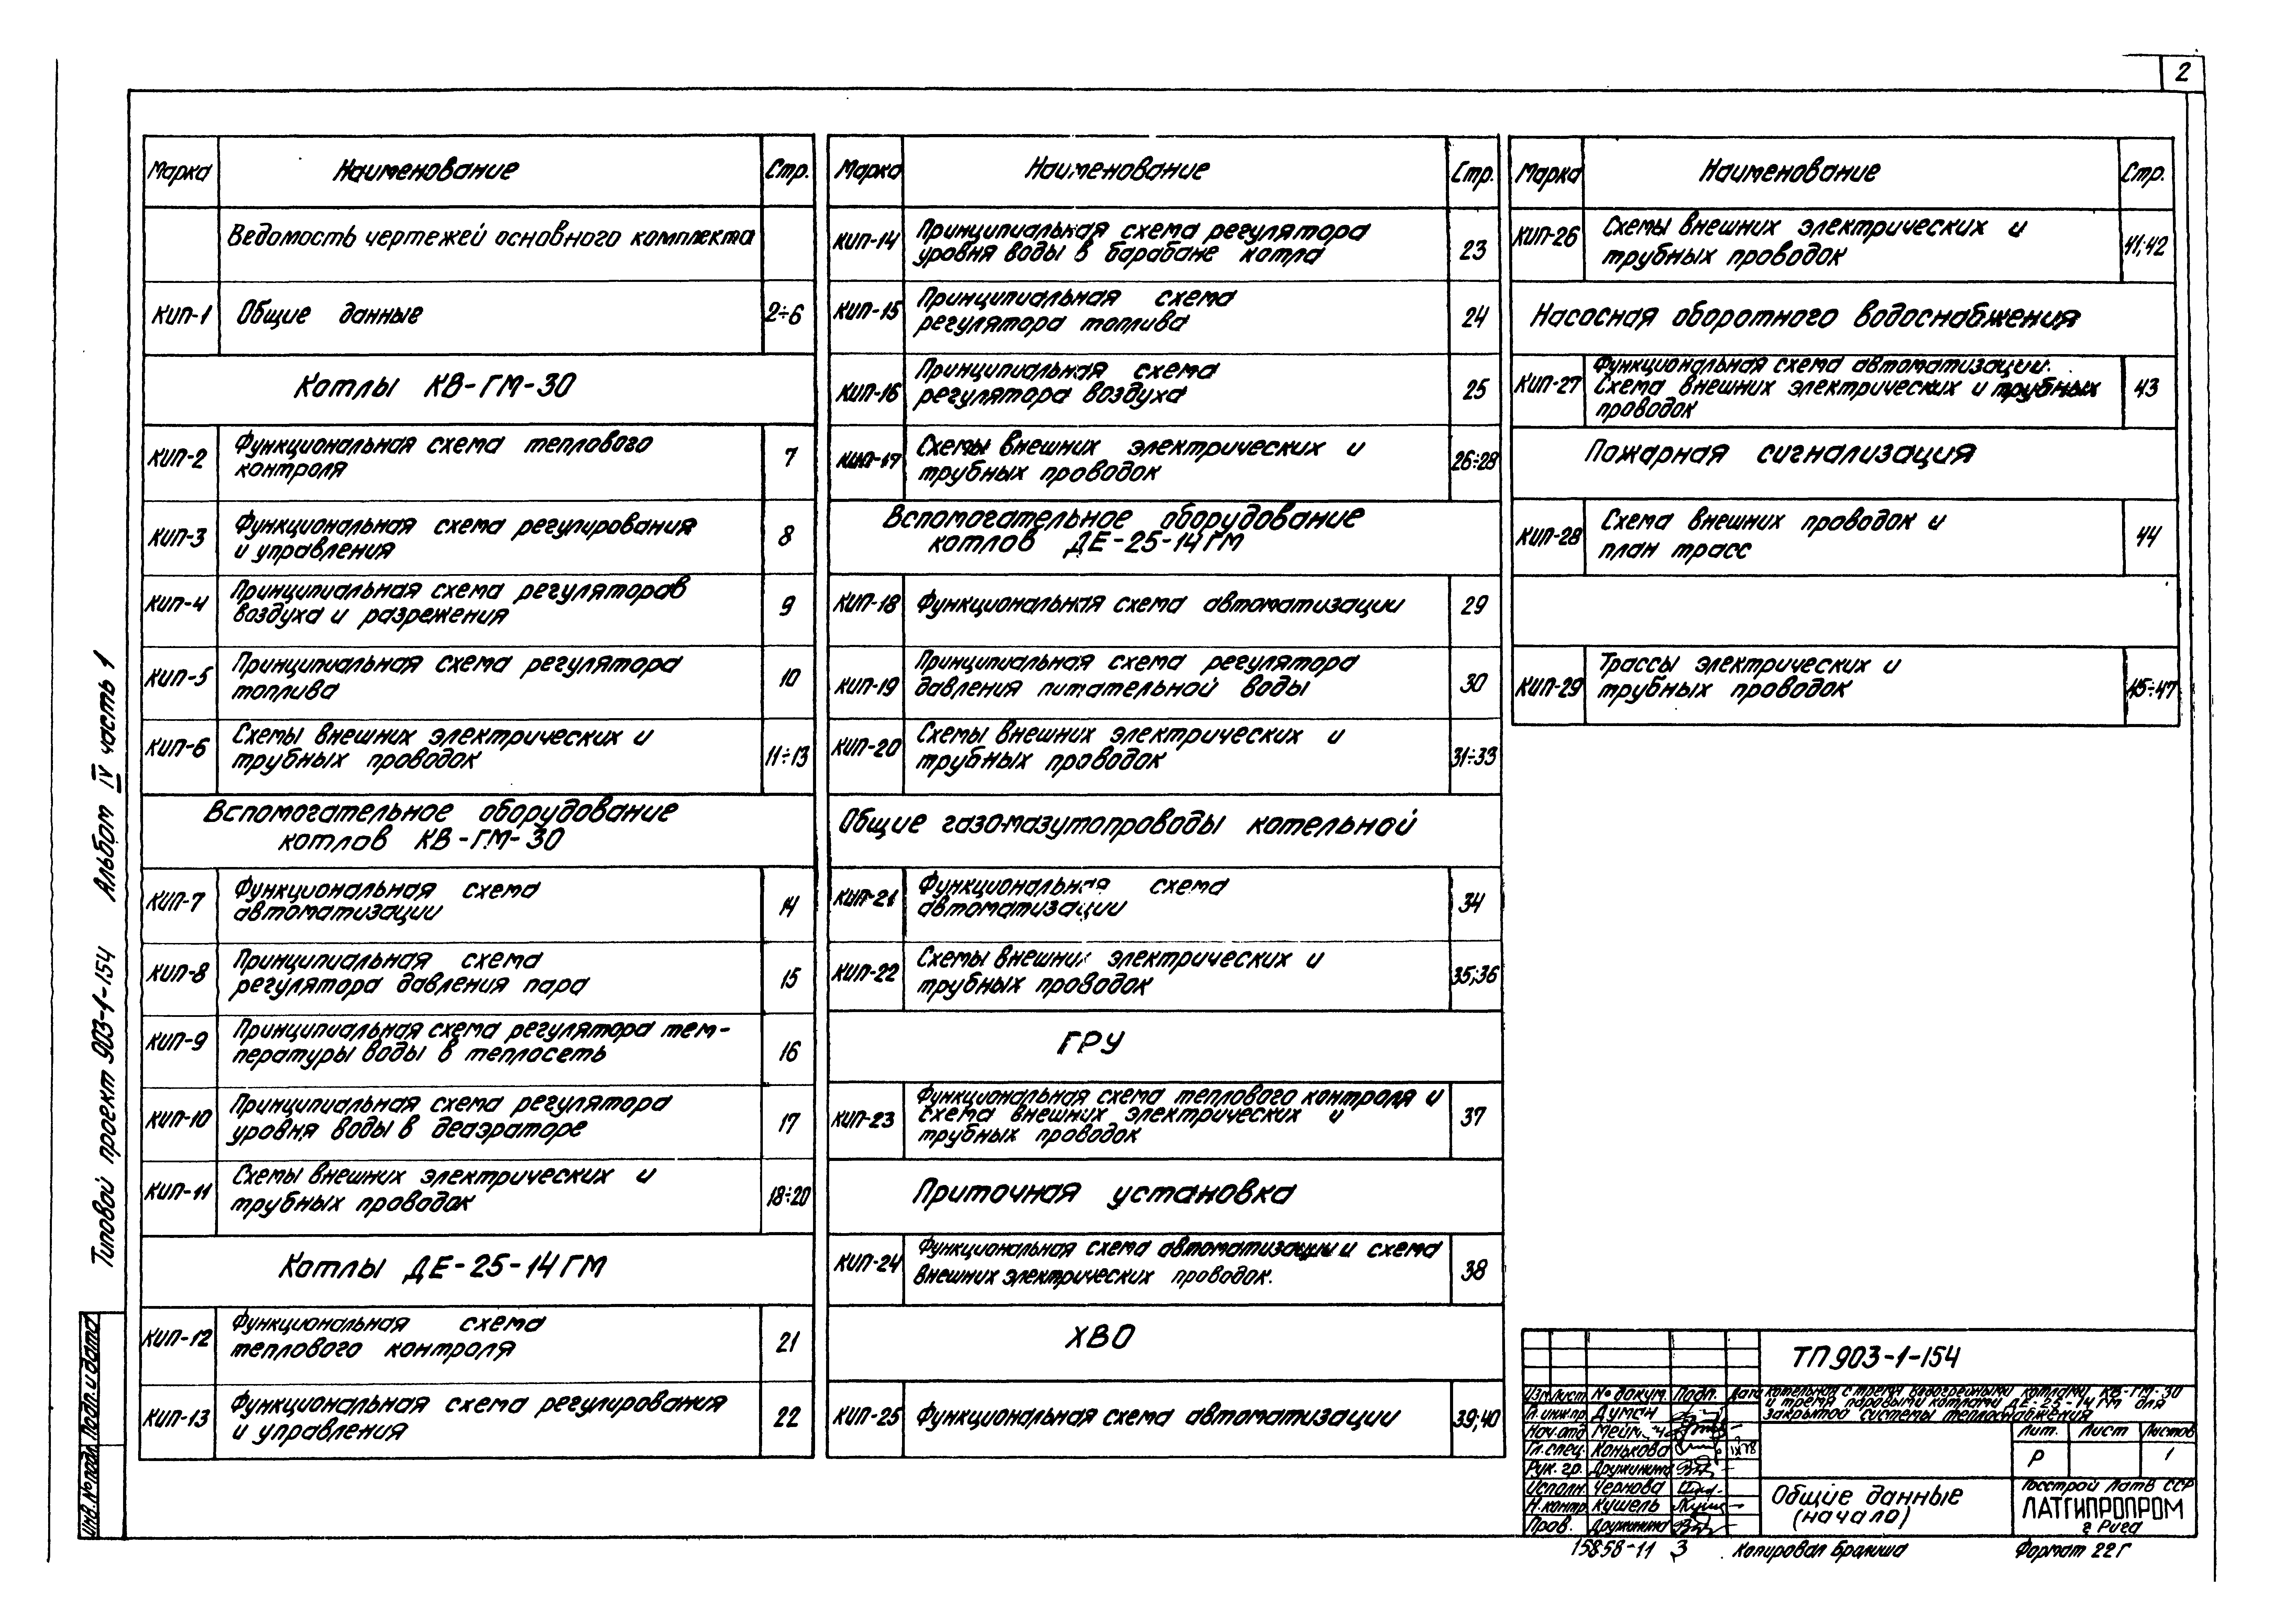 2
Марка Наименование Стр.
Ведомость чертежей основного комплекта
КИП-1 Общие данные 2÷6
Котлы КВ-ГМ-30
КИП-2 Функциональная схема теплового
контроля 7
КИП-3 Функциональная схема регулирования
и управления 8
КИП-4 Принципиальная схема регуляторов
воздуха и разрежения 9
КИП-5 Принципиальная схема регулятора
топлива 10
КИП-6 Схемы внешних электрических и
трубных проводок 11÷13
Вспомогательное оборудование
котлов КВ-ГМ-30
КИП-7 Функциональная схема
автоматизации 14
КИП-8 Принципиальная схема
регулятора давления пара 15
КИП-9 Принципиальная схема регулятора тем-
пературы воды в теплосеть 16
КИП-10 Принципиальная схема регулятора
уровня воды в деаэраторе 17
КИП-11 Схемы внешних электрических и
трубных проводок 18÷20
Котлы ДЕ-25-14ГМ
КИП-12 Функциональная схема
теплового контроля 21
КИП-13 Функциональная схема регулирования
и управления 22
Марка Наименование Стр.
КИП-14 Принципиальная схема регулятора
уровня воды в барабане котла 23
КИП-15 Принципиальная схема
регулятора топлива 24
КИП-16 Принципиальная схема
регулятора воздуха 25
КИП-17 Схемы внешних электрических и
трубных проводок 26÷28
Вспомогательное оборудование
котлов ДЕ-25-14ГМ
КИП-18 Функциональная схема автоматизации 29
КИП-19 Принципиальная схема регулятора
давления питательной воды 30
КИП-20 Схемы внешних электрических и
трубных проводок 31÷33
Общие газомазутопроводы котельной
КИП-21 Функциональная схема
автоматизации 34
КИП-22 Схемы внешних электрических и
трубных проводок 35;36
ГРУ
КИП-23 Функциональная схема теплового контроля и
схема внешних электрических и
трубных проводок 37
Приточная установка
КИП-24 Функциональная схема автоматизации и схема
внешних электрических проводок. 38
ХВО
КИП-25 Функциональная схема автоматизации 39;40
Марка Наименование Стр.
КИП-26 Схемы внешних электрических и
трубных проводок 41;42
Насосная оборотного водоснабжения
КИП-27 Функциональная схема автоматизации.
Схема внешних электрических и трубных
проводок 43
Пожарная сигнализация
КИП-28 Схема внешних проводок и
план трасс 44
КИП-29 Трассы электрических и
трубных проводок 45÷47
Типовой проект 903-1-154 Альбом IV часть 1
Инв. № подл. Подп. и дата
ТП 903-1-154
Изм. Лист № докум. Подп. Дата
Котельная с тремя водогрейными котлами КВ-ГМ-30
и тремя паровыми котлами ДЕ-25-14ГМ для
закрытой системы теплоснабжения
Гл. инж. пр. Думан
Нач. отд.
Гл. спец. Конькова
Рук. гр. Дружинина
Исполн. Чернова
Н. контр. Кушель
Пров. Дружинина
Лит. Лист Листов
Р 1
Общие данные
(начало)
Госстрой Латв ССР
ЛАТГИПРОПРОМ
г Рига
15858-11 3 Копировал Формат 22Г